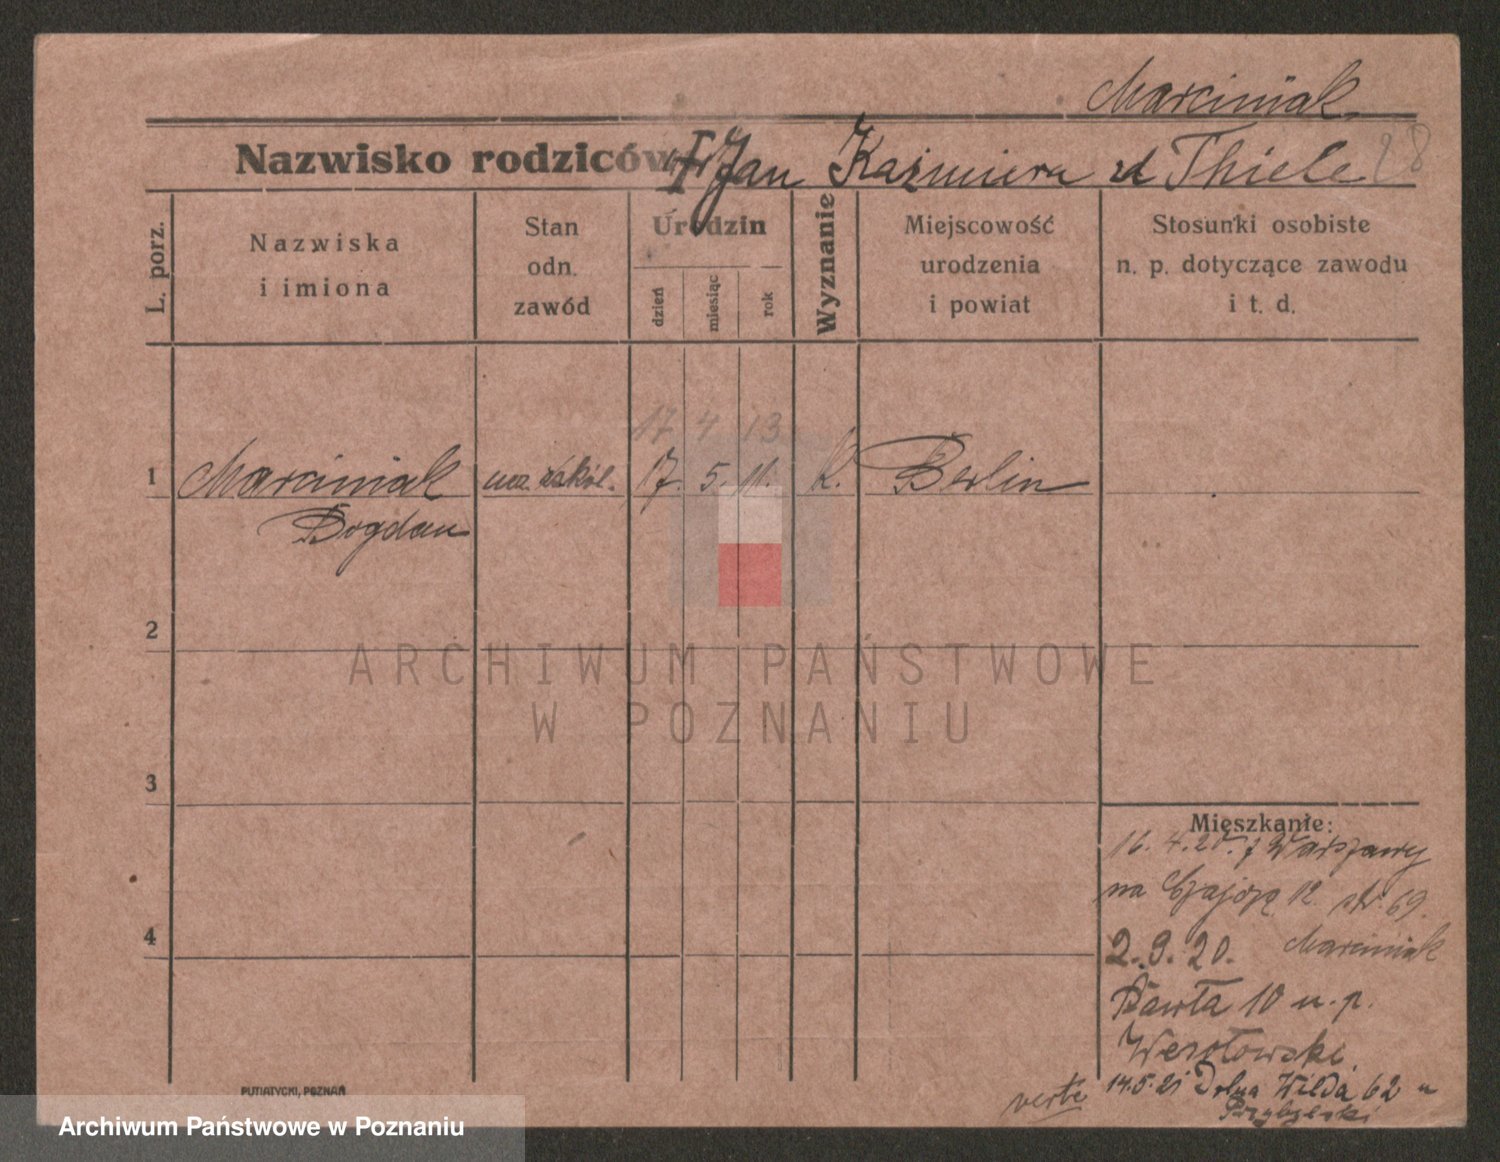 Marciniak
Nazwisko rodziców Jan Kaźmiera zd Thiele 28
L. porz.
Nazwiska
i imiona
Stan
odn.
zawód
Urodzin
dzień
miesiąc
rok
Wyznanie
Miejscowość
urodzenia
i powiat
Stosunki osobiste
n. p. dotyczące zawodu
i t. d.
17 4 13
1 Marciniak ucz. szkół. 17. 5. 11. k. Berlin
Bogdan
2
ARCHIWUM PAŃSTWOWE
W POZNANIU
3
Mieszkanie:
16. 4. 20. z Warszawy
na 12 str. 69.
4
2. 9. 20. Marciniak
Pawła 10 u. p.
Wesołowski
14.5.21 Dolna Wilda 62 u
Przybylski
verte
PUTIATYCKI, POZNAŃ
Archiwum Państwowe w Poznaniu